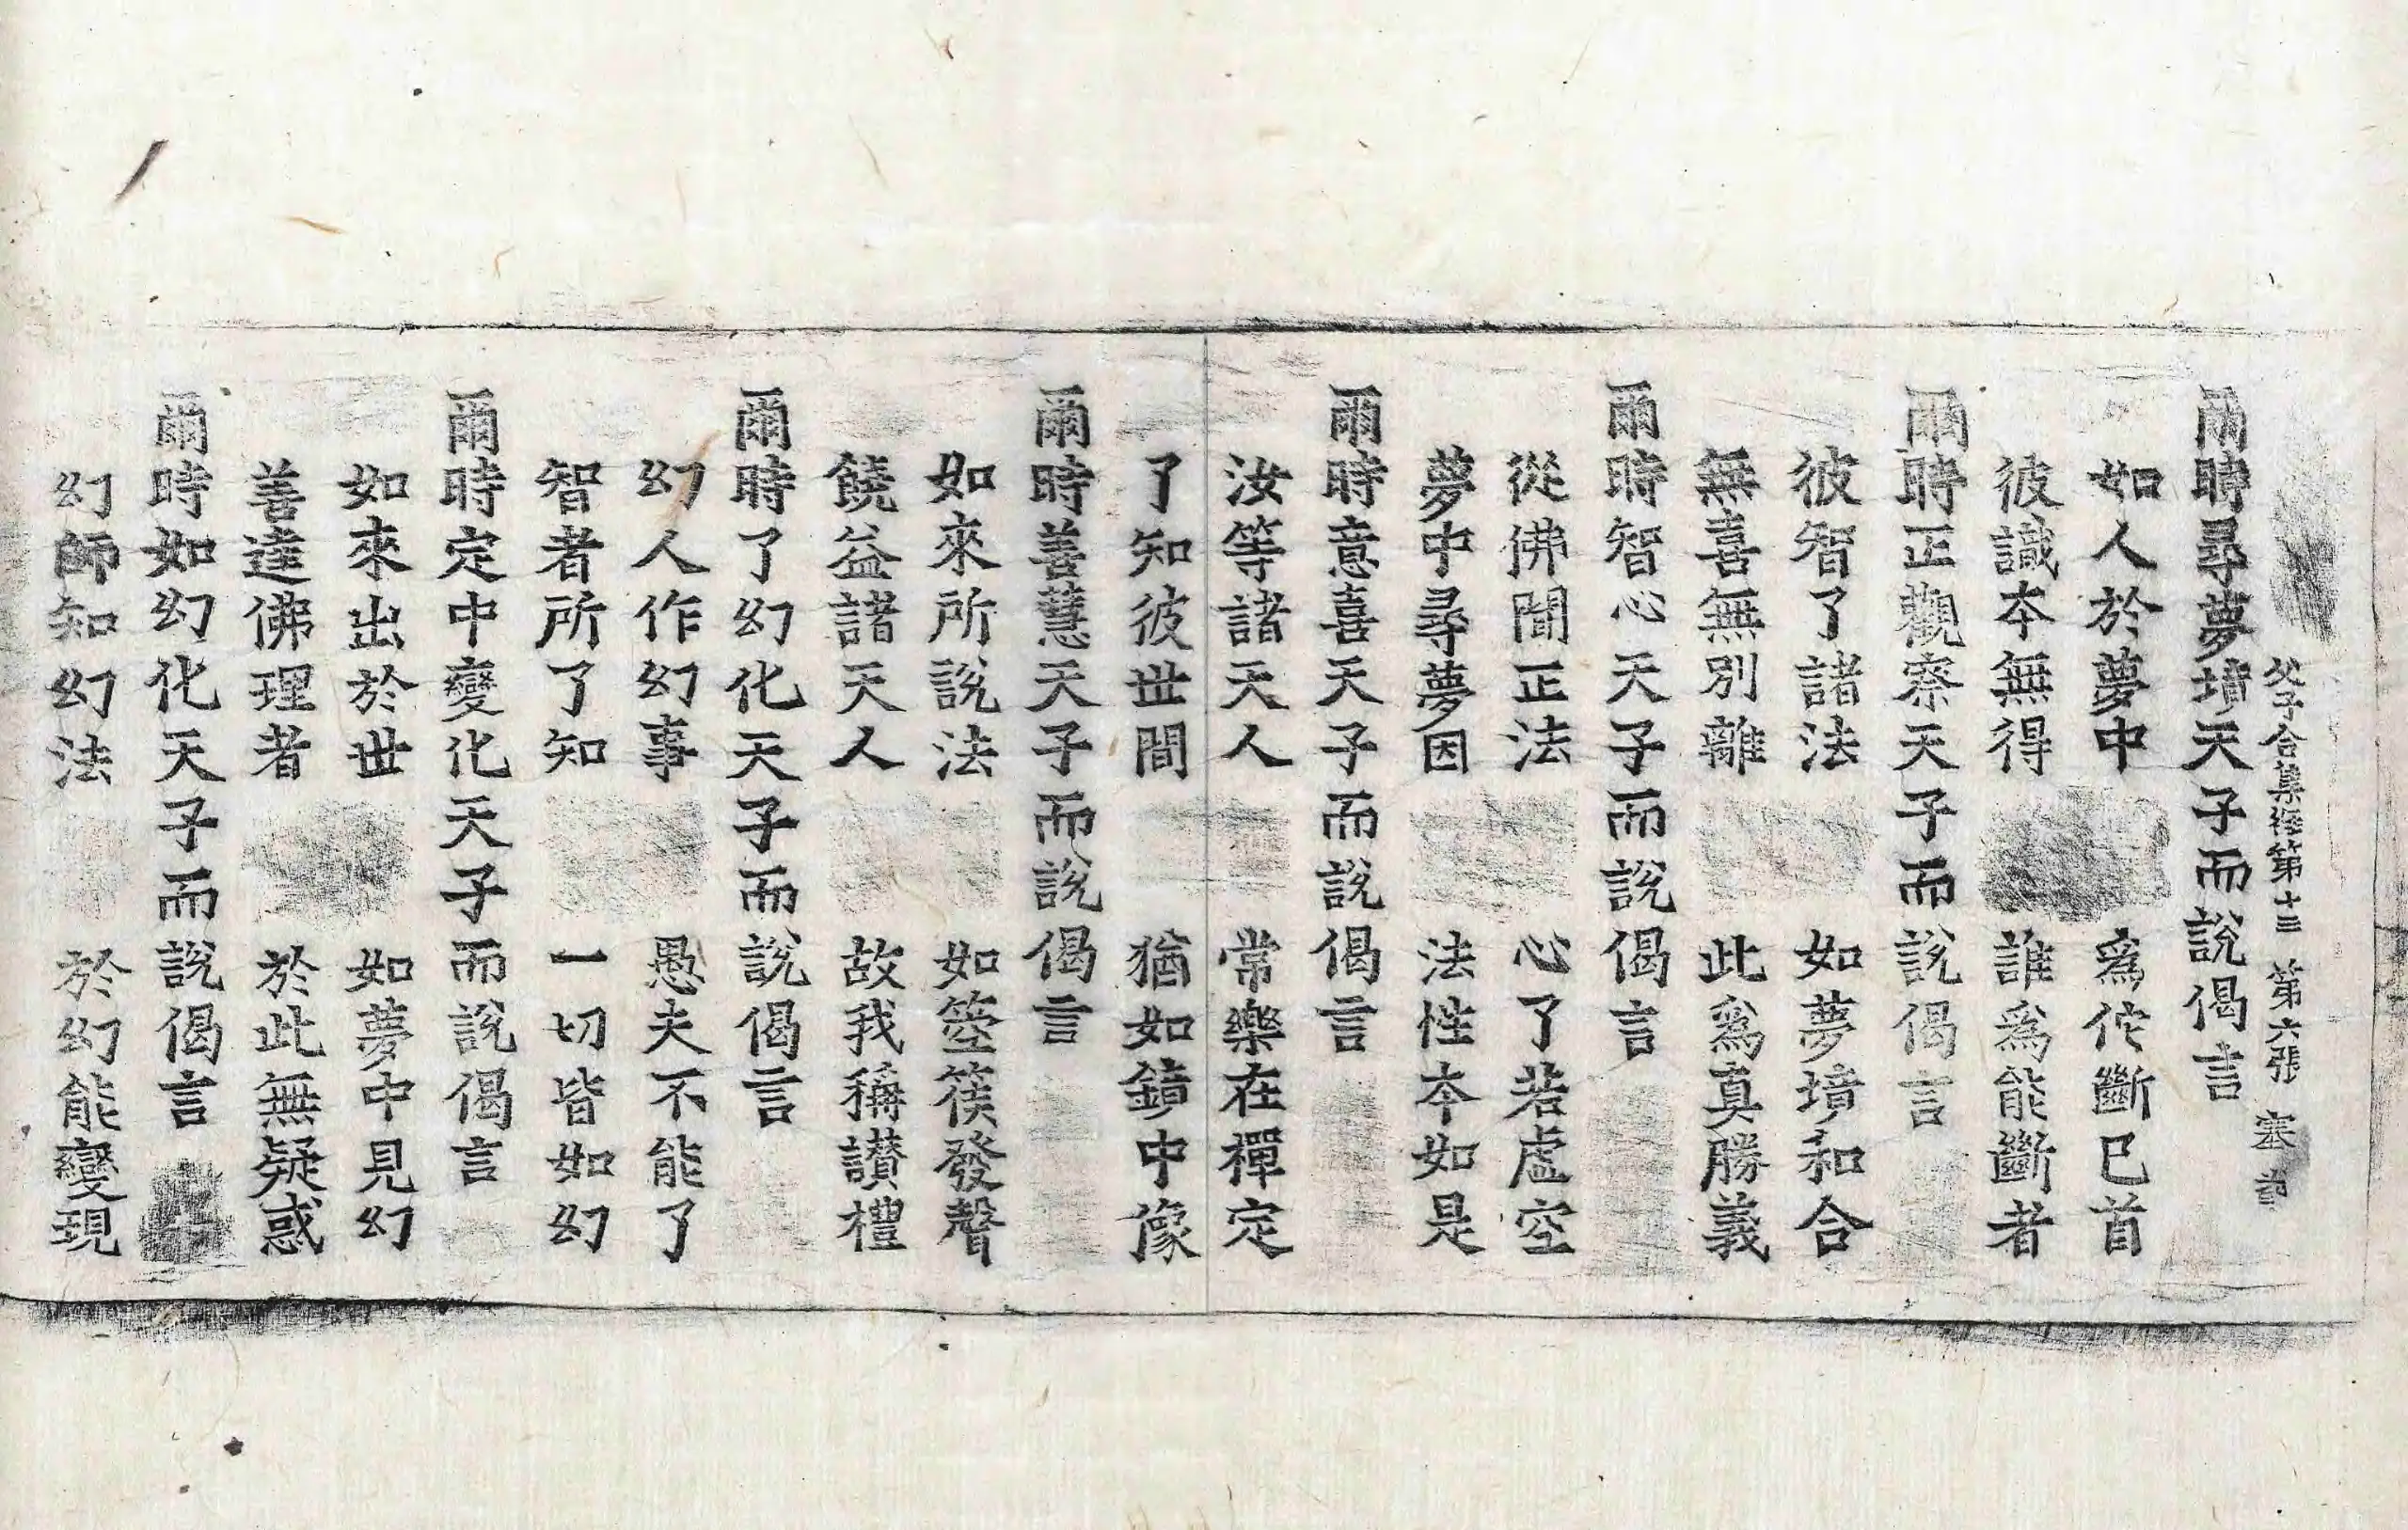 父子合集經第十三 第六張 塞
爾時尋夢境天子而說偈言
如人於夢中 爲佗斷巳首
彼識本無得 誰爲能斷者
爾時正觀察天子而說偈言
彼智了諸法 如夢境和合
無喜無別離 此爲真勝義
爾時智心天子而說偈言
從佛聞正法 心了若虛空
夢中尋夢因 法性本如是
爾時意喜天子而說偈言
汝等諸天人 常樂在禪定
了知彼世間 猶如鏡中像
爾時善慧天子而說偈言
如來所說法 如箜篌發聲
饒益諸天人 故我稱讃禮
爾時了幻化天子而說偈言
幻人作幻事 愚夫不能了
智者所了知 一切皆如幻
爾時定中變化天子而說偈言
如來出於世 如夢中見幻
善達佛理者 於此無疑惑
爾時如幻化天子而說偈言
幻師知幻法 於幻能變現